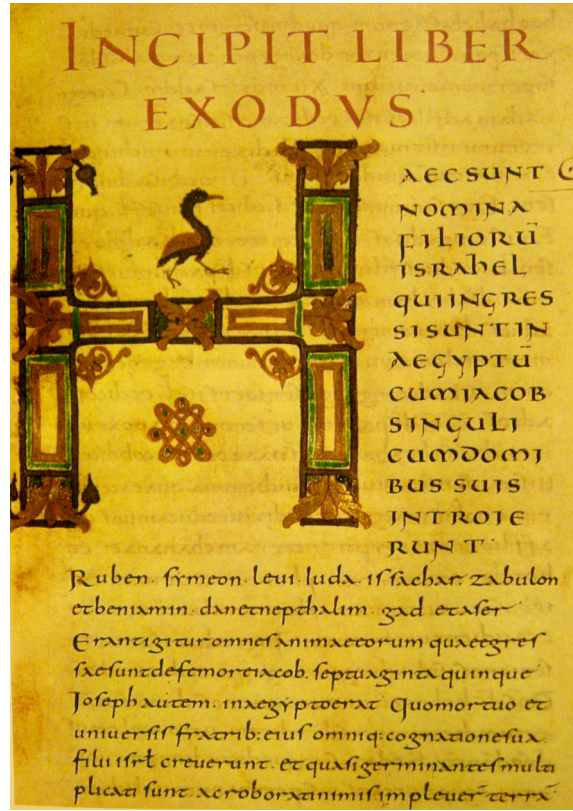 INCIPIT LIBER
EXODVS
HAEC SUNT
NOMINA
FILIORŪ
ISRAhEL
QUIINGRES
SISUNTIN
AEGYPTŪ
CUMIACOB
SINGULI
CUMDOMI
BUS SUIS
INTROIE
RUNT·
Ruben· symeon· levi· iuda· issachar· zabulon
etbeniamin· danetnepthalim· gad etaser
Erantigituromnesanimaeeorum quaeegres
saesuntdefemoreiacob· septuaginta quinque
Ioseph autem· inaegyptoerat Quomortuo et
universis fratrib: eius omniq: cognationesua
filii isrł creverunt· et quasigerminantesmulti
plicati sunt· ac roboratinimis impleuer̄ terrā